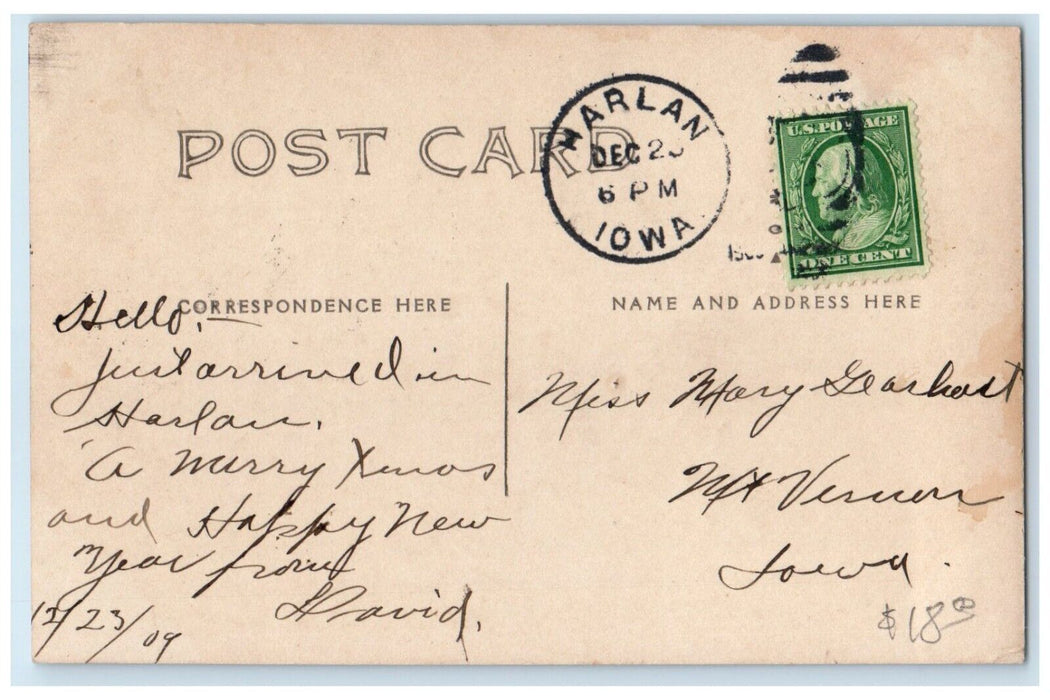 POST CARD
HARLAN
DEC 2
6 PM
IOWA
U.S. POSTAGE
ONE CENT
CORRESPONDENCE HERE
NAME AND ADDRESS HERE
Hello,—
just arrived in
Harlan.
A Merry Xmas
and Happy New
Year from
David.
12/23/09
Miss Mary Gearhart
Mt Vernon
Iowa.
$18.00